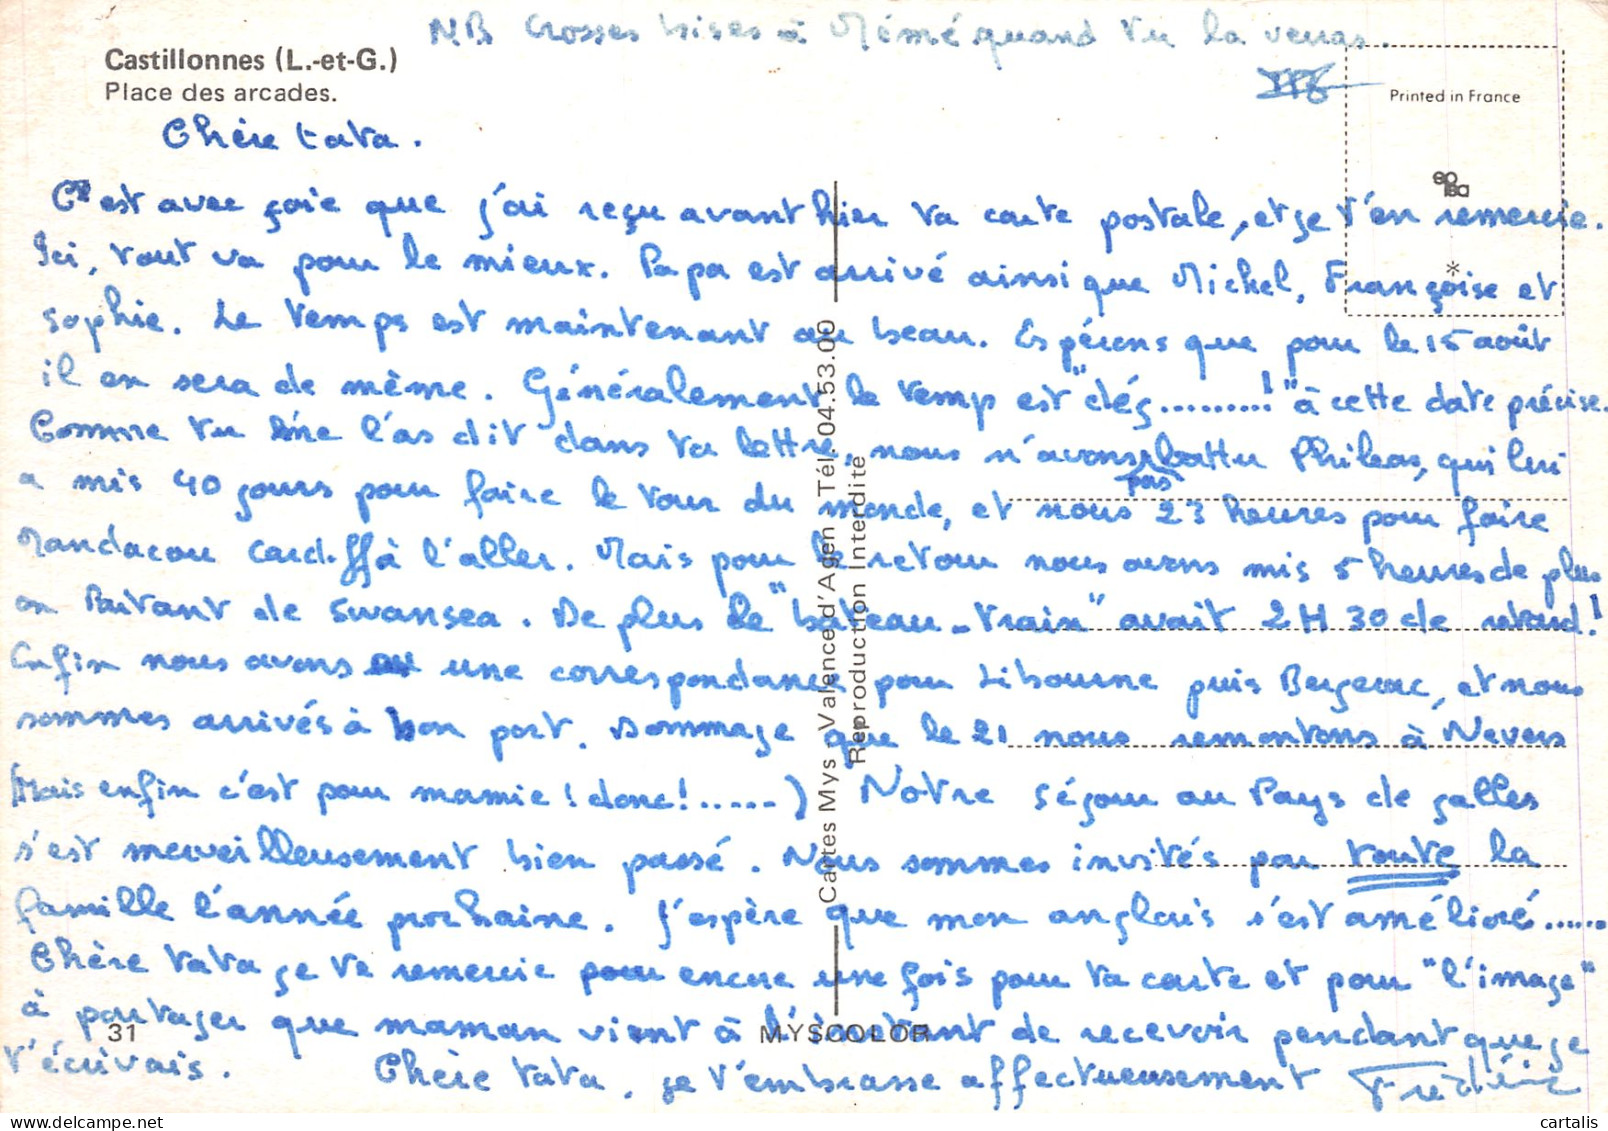 NB Grosses bises à Mémé quand tu la verras.
Castillonnes (L.-et-G.)
Place des arcades.
Printed in France
Chère tata.
C'est avec joie que j'ai reçu avant hier ta carte postale, et je t'en remercie.
Ici, tout va pour le mieux. Papa est arrivé ainsi que Michel, Françoise et
Sophie. Le temps est maintenant au beau. Espérons que pour le 15 août
il en sera de même. Généralement le temp est "dég.........!" à cette date précise.
Comme tu me l'as dit dans ta lettre, nous n'avons pas battu Phileas, qui lui
a mis 40 jours pour faire le tour du monde, et nous 23 heures pour faire
Mandacou Cardiff à l'aller. Mais pour le retour nous avons mis 5 heures de plus
en Partant de Swansea. De plus le "bateau-train" avait 2H30 de retard!
Enfin nous avons eu une correspondance pour Libourne puis Bergerac, et nous
sommes arrivés à bon port. Dommage que le 21 nous remontons à Nevers
(Mais enfin c'est pour mamie! donc!.....) Notre séjour au Pays de galles
s'est merveilleusement bien passé. Nous sommes invités par toute la
famille l'année prochaine. J'espère que mon anglais s'est amélioré......
Chère tata je te remercie pour encore une fois pour ta carte et pour "l'image"
à partager que maman vient à l'instant de recevoir pendant que je
t'écrivais. Chère tata, je t'embrasse affectueusement Frédéric
31
MYSCOLOR
Cartes Mys Valence d'Agen Tél. 04.53.00
Reproduction Interdite
cartalis
delcampe.net